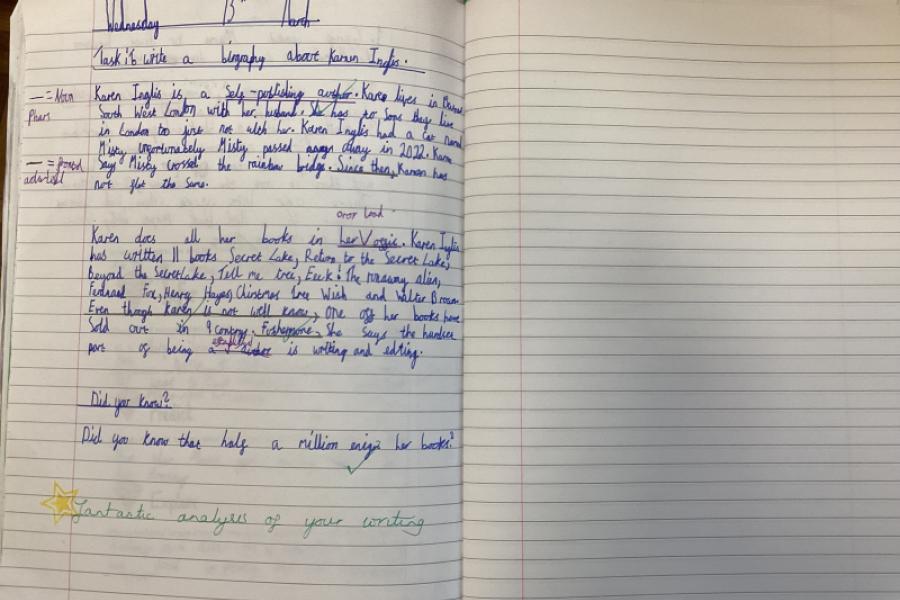 Wednesday 13th March
Task: to write a biography about Karen Inglis.
— = Noun
Karen Inglis is a Self-publishing author. Karen lives in
Phars
South West London with her husband. She has to sons they live
in London too just not with her. Karen Inglis had a cat named
Misty, unfortunately Misty passed away in 2022. Karen
— =
Says Misty crossed the rainbow bridge. Since then, Karen has
not felt the same.
over load
Karen does all her books in her Voggie. Karen Inglis
has written 11 books Secret Lake, Return to the Secret Lake,
beyond the Secret Lake, Tell me tree, Eeek! The runaway alien,
Ferdinand Fox, Henry Hayes, Christmas tree Wish and Walter Brown.
Even though Karen is not well know, one off her books have
Sold out in 9 contorys. Futhermore, She says the hardest
part of being a author is writing and editing.
Did you know?
Did you know that half a million enjoy her books?
Fantastic analysis of your writing